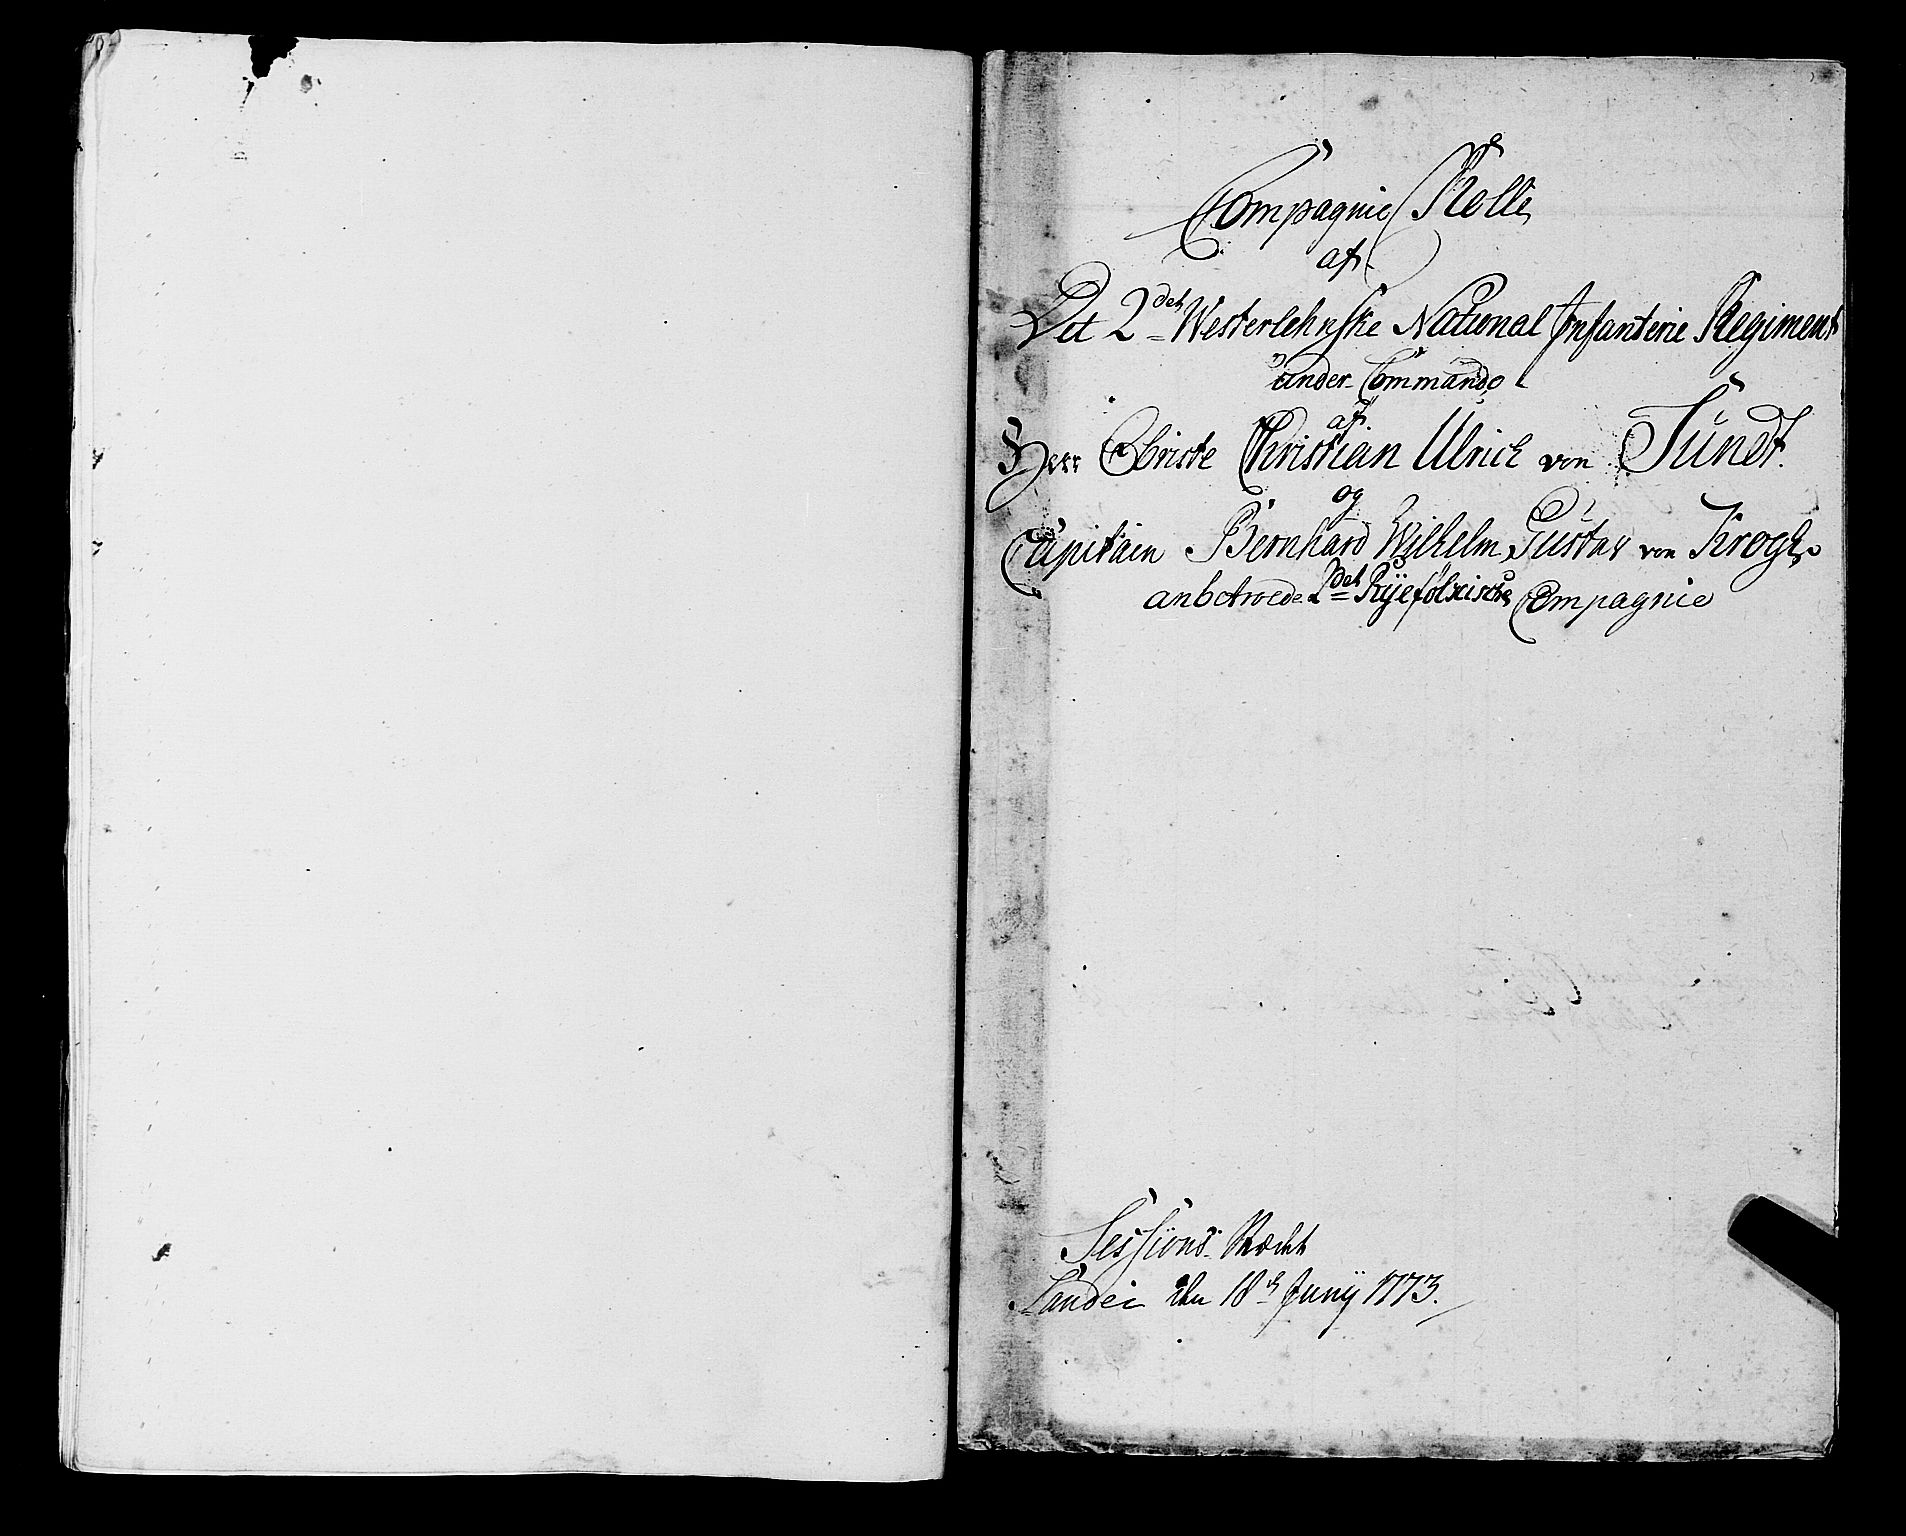 Compagnie Rolle
af
Det 2det Westerlehnske National Infanterie Regiment
under Commando
af
Herr Obriste Christian Ulrich von Sundt.
og
Capitain Bernhard Wilhelm Gustav von Krogh
anbetroede 2det Ryefølkiske Compagnie
Sessions
Sandei den 18d Junÿ 1773.